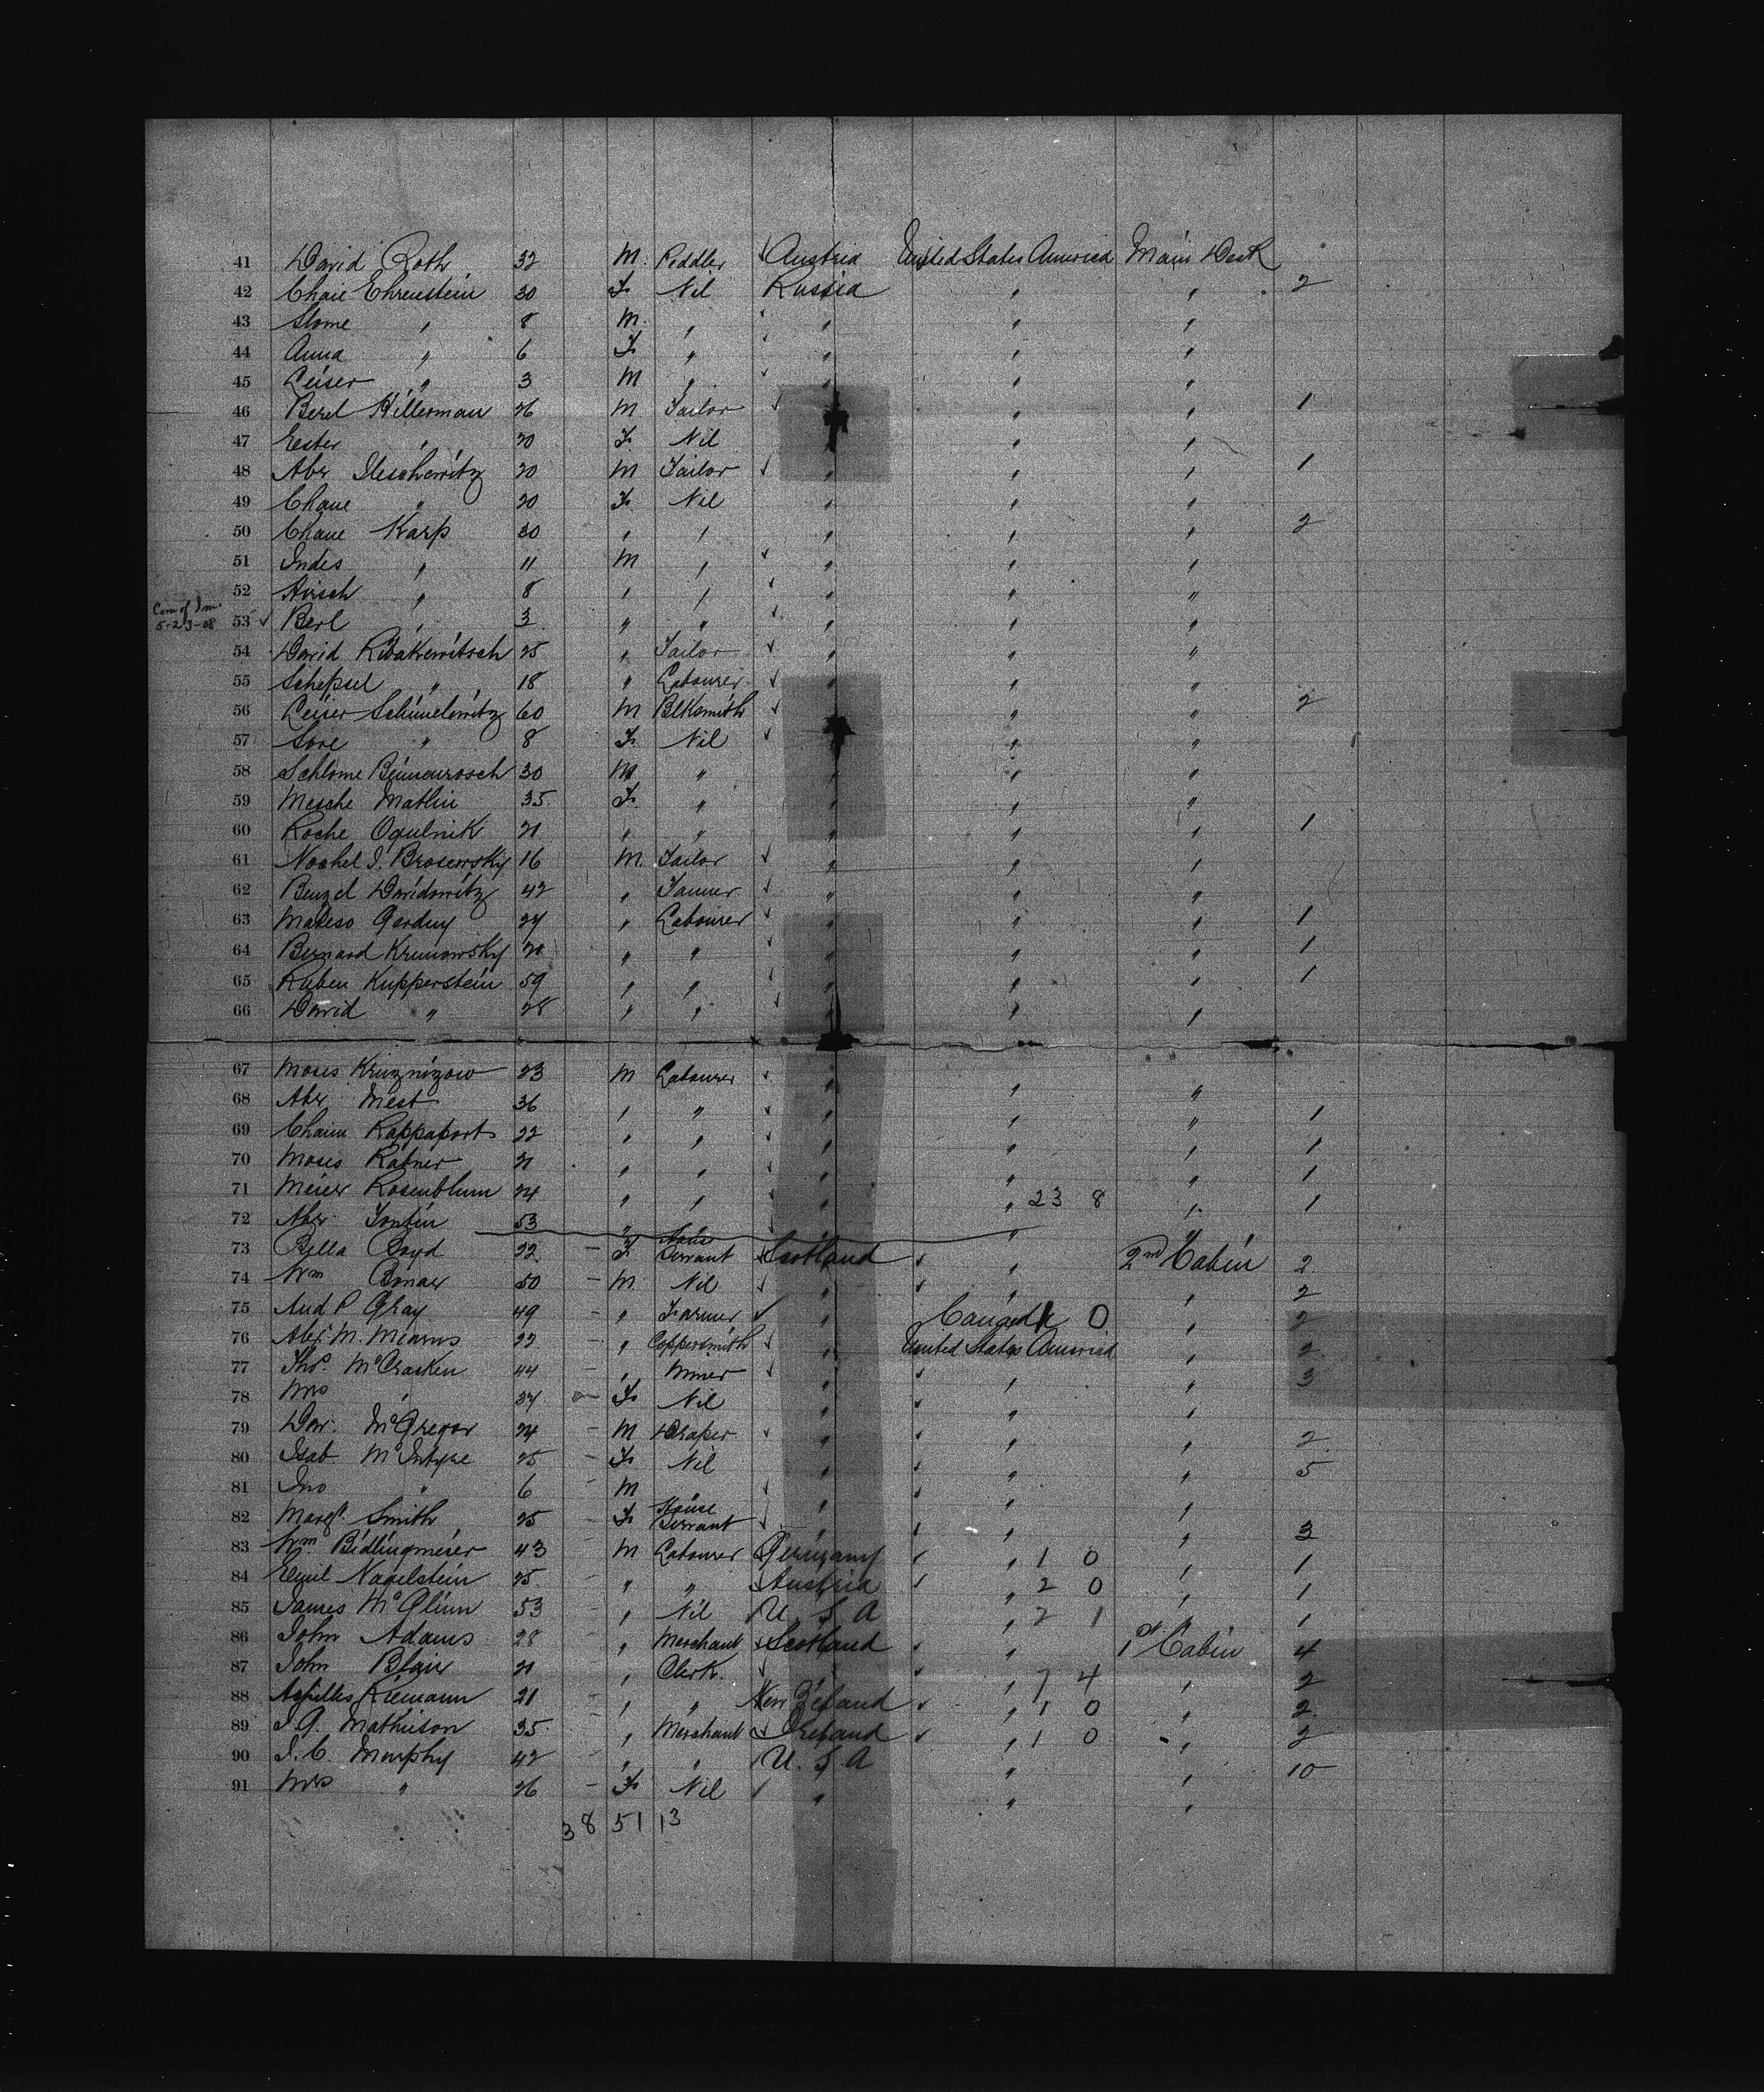 41 David Roth 32 M. Peddler Austria United States America Main Deck
42 Chaie Ehrenstein 30 F. Nil Russia " " 2
43 Slome " 8 M. " " " "
44 Anna " 6 F. " " " "
45 Leiser " 3 M " " " "
46 Berel Killerman 26 M Tailor " " " 1
47 Ester " 20 F. Nil " " "
48 Abr 20 M Tailor " " " 1
49 Chane " 20 F. Nil " " "
50 Chane Karp 30 " " " " " 2
51 Indes " 11 M " " " "
52 Hirsch " 8 " " " " "
Com of Im
5-23-08
53 Berl " 3 " " " " "
54 David Ribakewitsch 25 " Tailor " " "
55 Schepsel " 18 " Labourer " " "
56 Leiser Schimelewitz 60 M Blksmith " " " 2
57 Sore " 8 F. Nil " " "
58 Schlome 30 M " " " "
59 Mesche Matlin 35 F. " " " "
60 Roche Ogulnik 21 " " " " " 1
61 Nochel I. Brosewsky 16 M. Tailor " " "
62 Benzel Davidowitz 42 " Tanner " " "
63 Mateso 27 " Labourer " " " 1
64 Bernard 20 " " " " " 1
65 Ruben Kupperstein 59 " " " " " 1
66 David " 28 " " " " "
67 Moses Kruznizow 23 M Labourer " " "
68 Abr Mest 36 " " " " " 1
69 Chaim Rappaport 22 " " " " " 1
70 Moses Ratner 21 " " " " " 1
71 Meier Rosenblum 24 " " " " 23 8 " 1
72 Abr. 53 " "
73 Bella Boyd 22 - F. House Servant Scotland " 2nd Cabin 2
74 Wm Bonar 50 - M. Nil " " " 2
75 And P Gray 49 - " Farmer " Canada 1 0 " 2
76 Alex. M. Mearns 22 - " Coppersmith " United States America " 2
77 Thos. McCracken 44 - " Miner " " " 3
78 Mrs " 37 - F. Nil " " "
79 Dav. McGregor 24 - M Draper " " " 2
80 Isab McIntyre 25 - F. Nil " " " 5
81 Jno " 6 - M " " "
82 Margt. Smith 25 - F. House Servant " " " 3
83 Wm. Bidlingmeier 43 M Labourer Germany " 1 0 " 1
84 Emil Nagelstein 25 - " " Austria " 2 0 " 1
85 James McGlinn 53 - " Nil U.S.A " 2 1 1
86 John Adams 28 - " Merchant Scotland " 1st Cabin 4
87 John Blair 21 " Clerk. " " 7 4 " 2
88 Achilles Riemann 21 - " " New Zealand " 1 0 " 2
89 J. G. Mathieson 35 - " Merchant Ireland " 1 0 " 2
90 J. C. Murphy 42 - " " U.S.A " " 10
91 Mrs " 26 - F. Nil " " "
38 51 13